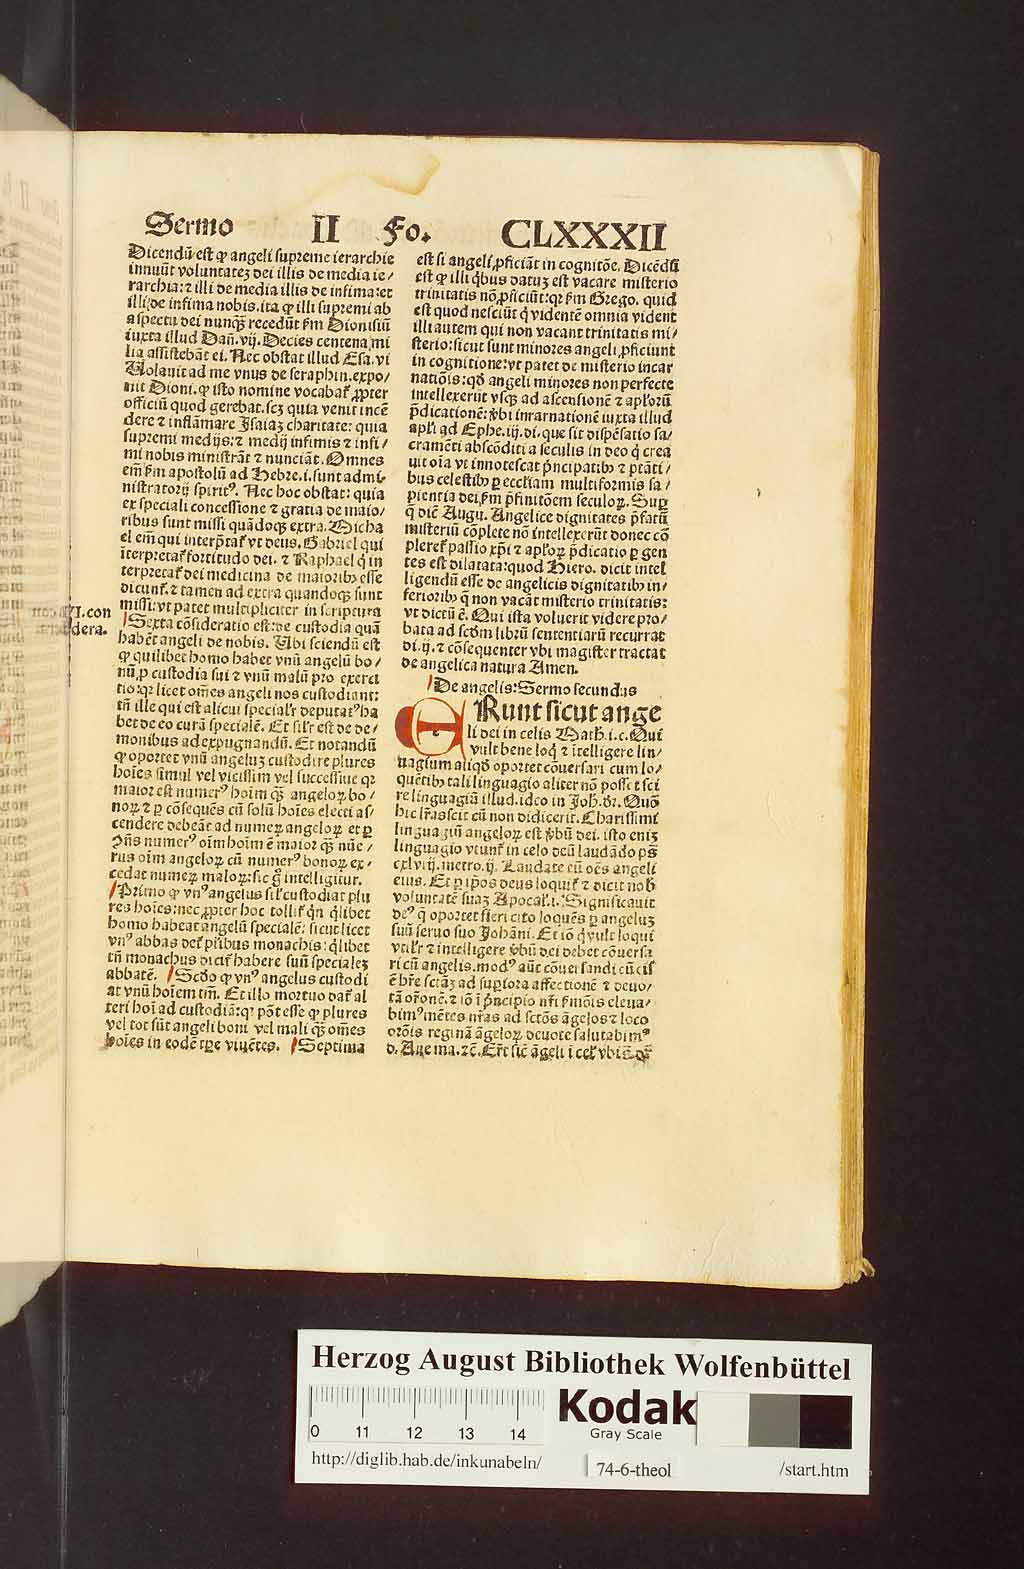 Sermo II Fo. CLXXXII
Dicendū est ꝙ angeli supreme ierarchie
innuūt voluntatez dei illis de media ie/
rarchia: ⁊ illi de media illis de infima: et
illi de infima nobis. ita ꝙ illi supremi ab
aspectu dei nunqȝ recedūt ẜm Dionisiū
iuxta illud Dañ. vij. Decies centena mi
lia assistebāt ei. Nec obstat illud Esa. vi
Uolauit ad me vnus de seraphin. expo/
nit Dioni. ꝙ isto nomine vocabat̄ ꝓpter
officiū quod gerebat. scȝ quia venit incē
dere ⁊ inflāmare Isaiaȝ charitate: quia
supremi medijs: ⁊ medij infimis ⁊ infi/
mi nobis ministrāt ⁊ nunciāt. Omnes
em̄ ẜm apostolū ad Hebre. i. sunt admi
nistratorij spiritꝰ. Nec hoc obstat: quia
ex speciali concessione ⁊ gratia de maio/
ribus sunt missi quādoqȝ extra. Micha
el em̄ qui interp̄tat̄ vt deus. Gabriel qui
īterpretat̄ fortitudo dei. ⁊ Raphael q̇ in
terpretat̄ dei medicina de maioribȝ esse
dicunt̄. ⁊ tamen ad extra quandoqȝ sunt
missi: vt patet multipliciter in scriptura
VI. con
dera.
Sexta cōsideratio est: de custodia quā
habēt angeli de nobis. Ubi sciendū est
ꝙ quilibet homo habet vnū angelū bo/
nū ꝓ custodia sui ⁊ vnū malū pro exerci
tio: qꝛ licet om̄es angeli nos custodiant:
tn̄ ille qui est alicui specialr̄ deputatꝰ ha
bet de eo curā specialē. Et silr̄ est de de/
monibus ad expugnandū. Et notandū
ꝙ oportet vnū angeluȝ custodire plures
hoīes simul vel vicissim vel successiue qꝛ
maior est numerꝰ hoīm qȝ angeloꝝ bo/
noꝝ ⁊ ꝑ cōsequēs cū solū hoīes electi as/
cendere debeāt ad numeꝝ angeloꝝ et ꝑ
ꝯn̄s numerꝰ oīm hoīm ē maior qȝ nūe/
rus oīm angeloꝝ cū numerꝰ bonoꝝ ex/
cedat numeꝝ maloꝝ: sic g̊ intelligitur.
Primo ꝙ vnꝰ angelus sil̄ custodiat plu
res hoīes: nec ꝓpter hoc tollit̄ q̇n q̇libet
homo habeat angelū specialē: sicut licet
vnꝰ abbas det̄ pl̄ibus monachis: q̇libet
tn̄ monachus dicit̄ habere suū specialeȝ
abbatē. Scd̄o ꝙ vnꝰ angelus custodi
at vnū hoīem tm̄. Et illo mortuo dat̄ al
teri hoī ad custodiā: qꝰ pōt esse ꝙ plures
vel tot sūt angeli boni vel mali qȝ om̄es
hoīes in eodē tp̄e viuētes. Septima
est si angeli ꝓficiāt in cognitōe. Dicēdū
est ꝙ illi q̇bus datuȝ est vacare misterio
trinitatis nō ꝓficiūt: qꝛ ẜm Grego. quid
est quod nesciūt q̇ videntē omnia vident
illi autem qui non vacant trinitatis mi/
sterio: sicut sunt minores angeli ꝓficiunt
in cognitione: vt patet de misterio incar
natiōis: qd̄ angeli minores non perfecte
intellexerūt vsqȝ ad ascensionē ⁊ apl̄oꝝ
p̄dicationē: vbi inrarnationē iuxta illud
apl̄i ad Ephe. iij. di. que sit dispēsatio sa/
cramēti abscōditi a seculis in deo q̇ crea
uit oīa vt innotescat p̄ncipatibȝ ⁊ ptāti/
bus celestibȝ ꝑ eccl̄iam multiformis sa/
pientia dei ẜm p̄finitōem seculoꝝ. Suꝑ
q̊ dic̄ Augu. Angelice dignitates p̄fatū
misteriū cōplete nō intellexerūt donec cō
pleret̄ passio xp̄i ⁊ apl̄oꝝ p̄dicatio ꝑ gen
tes est dilatata: quod Hiero. dicit intel
ligendū esse de angelicis dignitatibȝ in/
feriobȝ q̄ non vacāt misterio trinitatis:
vt dictū ē. Qui ista voluerit videre pro/
bata ad scd̄m librū sententiarū recurrat
di. ij. ⁊ cōsequenter vbi magister tractat
de angelica natura Amen.
De angelis: Sermo secundus
ERunt sicut ange
li dei in celis Math. i.c. Qui
vult bene loq̇ ⁊ ītelligere lin/
nagium aliqd̄ oportet cōuersari cum lo/
quētibȝ tali linguagio aliter nō posset sci
re linguagiū illud. ideo in Joh. dr̄. Quō
hic lr̄as scit cū non didicerit. Charissimi
linguagiū angeloꝝ est v̄bū dei. isto eniȝ
linguagio vtunt̄ in celo deū laudādo ps̄
cxlviij. metro. ij. Laudate eū oēs angeli
eius. Et ꝑ ip̄os deus loquit̄ ⁊ dicit nob̄
voluntatē suaȝ Apocal̄. i. Significauit
deꝰ q̄ oportet fieri cito loquēs ꝑ angeluȝ
suū seruo suo Johāni. Et iō q̇ vult loqui
vtilr̄ ⁊ intelligere v̄bū dei debet cōuersa
ri cū angelis. modꝰ aūt cōuersandi cū eis
ē hr̄e sctāȝ ad suꝑiora affectionē ⁊ deuo/
tā or̄onē. ⁊ iō ī p̄ncipio nr̄i ẜmōis eleua/
bimꝰ mētes nr̄as ad sctōs āgelos ⁊ loco
orōis reginā āgeloꝝ deuote salutabimꝰ
d. Aue ma. ⁊c̄. Er̄t sic̄ āgeli ī cel̄ vbi
Herzog August Bibliothek Wolfenbüttel
0 11 12 13 14
Kodak
Gray Scale
http://diglib.hab.de/inkunabeln/ 74-6-theol /start.htm